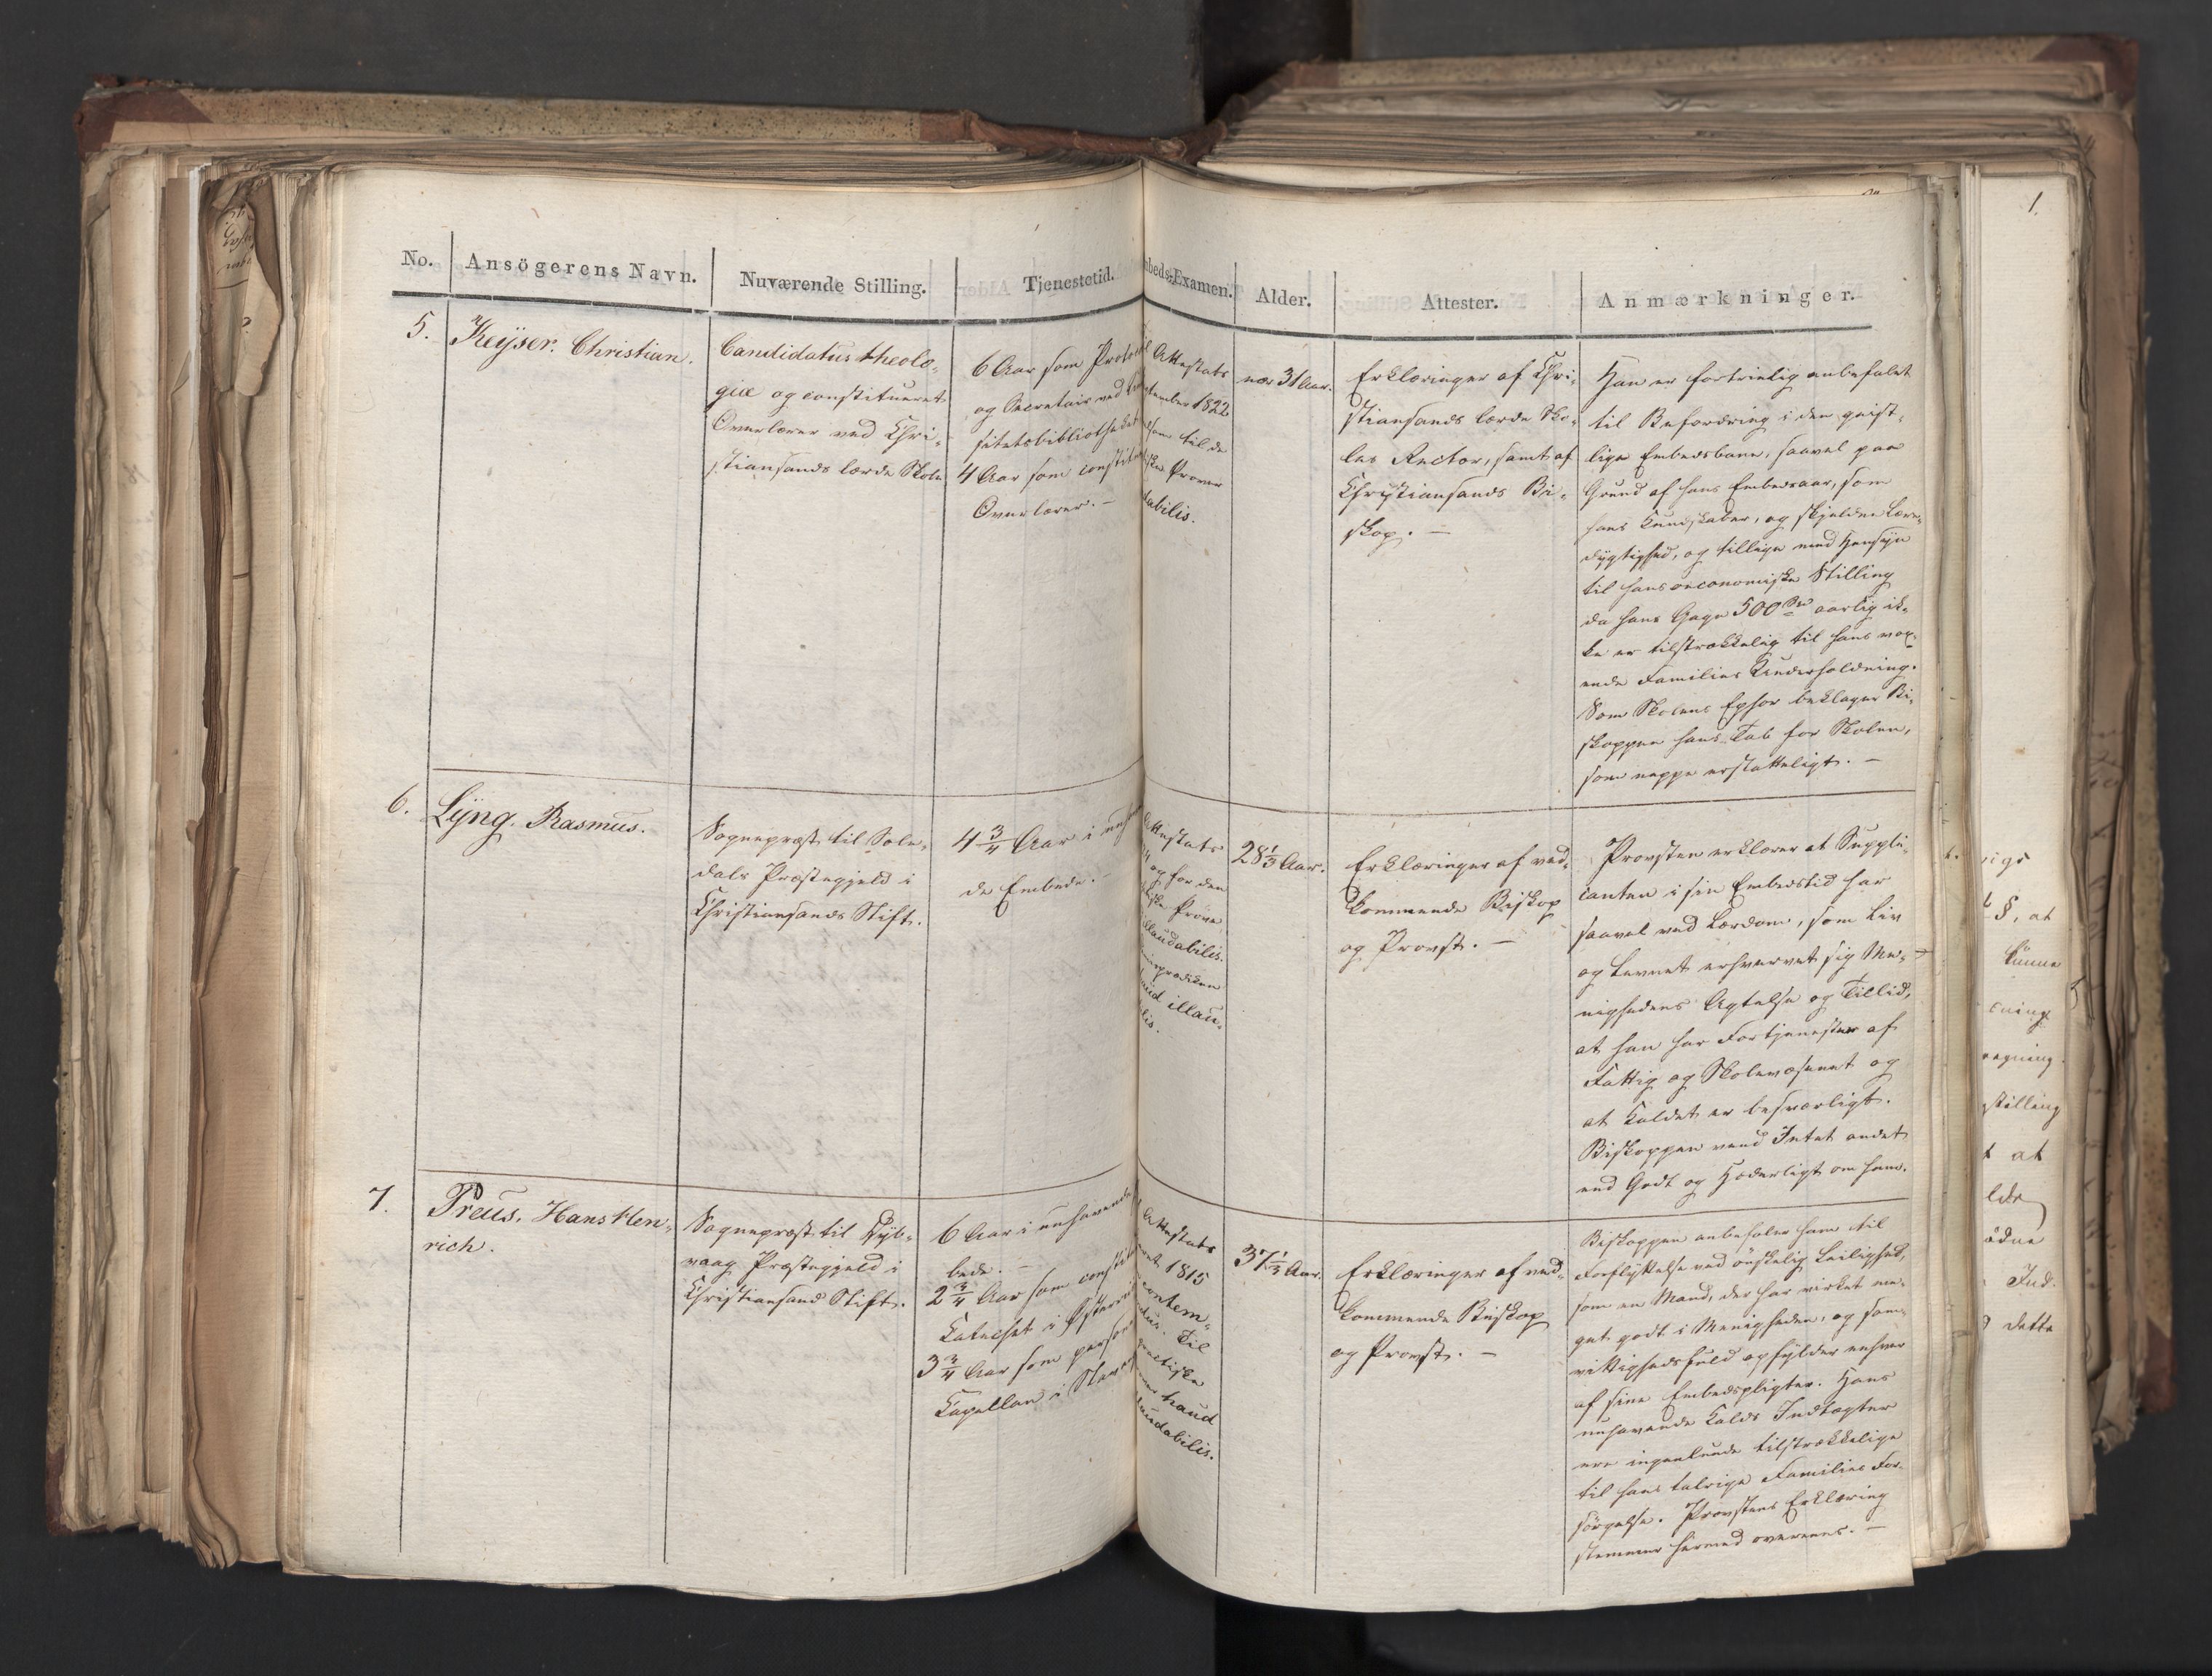 No.
Ansögerens Navn.
Nuværende Stilling.
Tjenestetid.
mbeds-Examen.
Alder.
Attester.
Anmærkninger.
5.
Keÿser. Christian.
Candidatus theolo-
giæ og constitueret
Overlærer ved Chri-
stiansands lærde Skole
6 Aar som Protocol
og Secretair ved
sitetsbibliotheket
4 Aar som constitu
Overlærer. —
Attestats
ptember 1822
som til de
iske Prøver
dabilis.
nær 31 Aar.
Erklæringer af Chri-
stiansands lærde Sko-
les Rector, samt af
Christiansands Bi-
skop. —
Han er fortrinlig anbefalet
til Befordring i den geist-
lige Embedsbane, saavel paa
Grund af hans Embedsaar, som
hans Kundskaber, og sjeldne Lære-
dygtighed, og tillige med Hensyn
til hans oeconomiske Stilling
da hans Gage 500 Spd aarlig ik-
ke er tilstrækkelig til hans vox-
ende Families Underholdning.
Som Skolens Ephor beklager Bi-
skoppen hans Tab for Skolen,
som neppe erstatteligt. —
6.
Lÿng. Rasmus.
Sognepræst til Sole-
dals Præstegjeld i
Christiansands Stift.
4 3/4 Aar i nuhaven
de Embede. —
Attestats
og for den
iske Prøve
illaudabilis.
imisprædiken
haud illau-
lis.
28 1/3 Aar.
Erklæringer af ved-
kommende Biskop
og Provst. —
Provsten erklærer at Suppli-
canten i sin Embedstid har
saavel ved Lærdom, som Liv
og Levnet erhvervet sig Me-
nighedens Agtelse og Tillid,
at han har Fortjenester af
Fattig og Skolevæsenet og
at Kaldet er besværligt.
Biskoppen veed Intet andet
end Godt og Hæderligt om ham.
7.
Preus. Hans Hen-
rich.
Sognepræst til Dÿb-
vaag Præstegjeld i
Christiansand Stift.
6 Aar i nuhavende
bede. —
2 3/4 Aar som constitu
Catechet i Østerriis
3 3/4 Aar som person
Capellan i Stav
Attestats
et 1815
contem-
dus. Til
practiske
haud
laudabilis.
37 1/3 Aar.
Erklæringer af ved-
kommende Biskop
og Provst. —
Biskoppen anbefaler ham til
Forflyttelse ved önskelig Leilighed,
som en Mand, der har virket me-
get godt i Menigheden, og sam-
vittighedsfuld opfylder enhver
af sine Embedspligter. Hans
nuhavende Kalds Indtægter
ere ingenlunde tilstrækkelige
til hans talrige Families For-
sörgelse. Provstens Erklæring
stemmer hermed overeens. —
1.
§, at
kunne
stilling
at
Ind-
dette